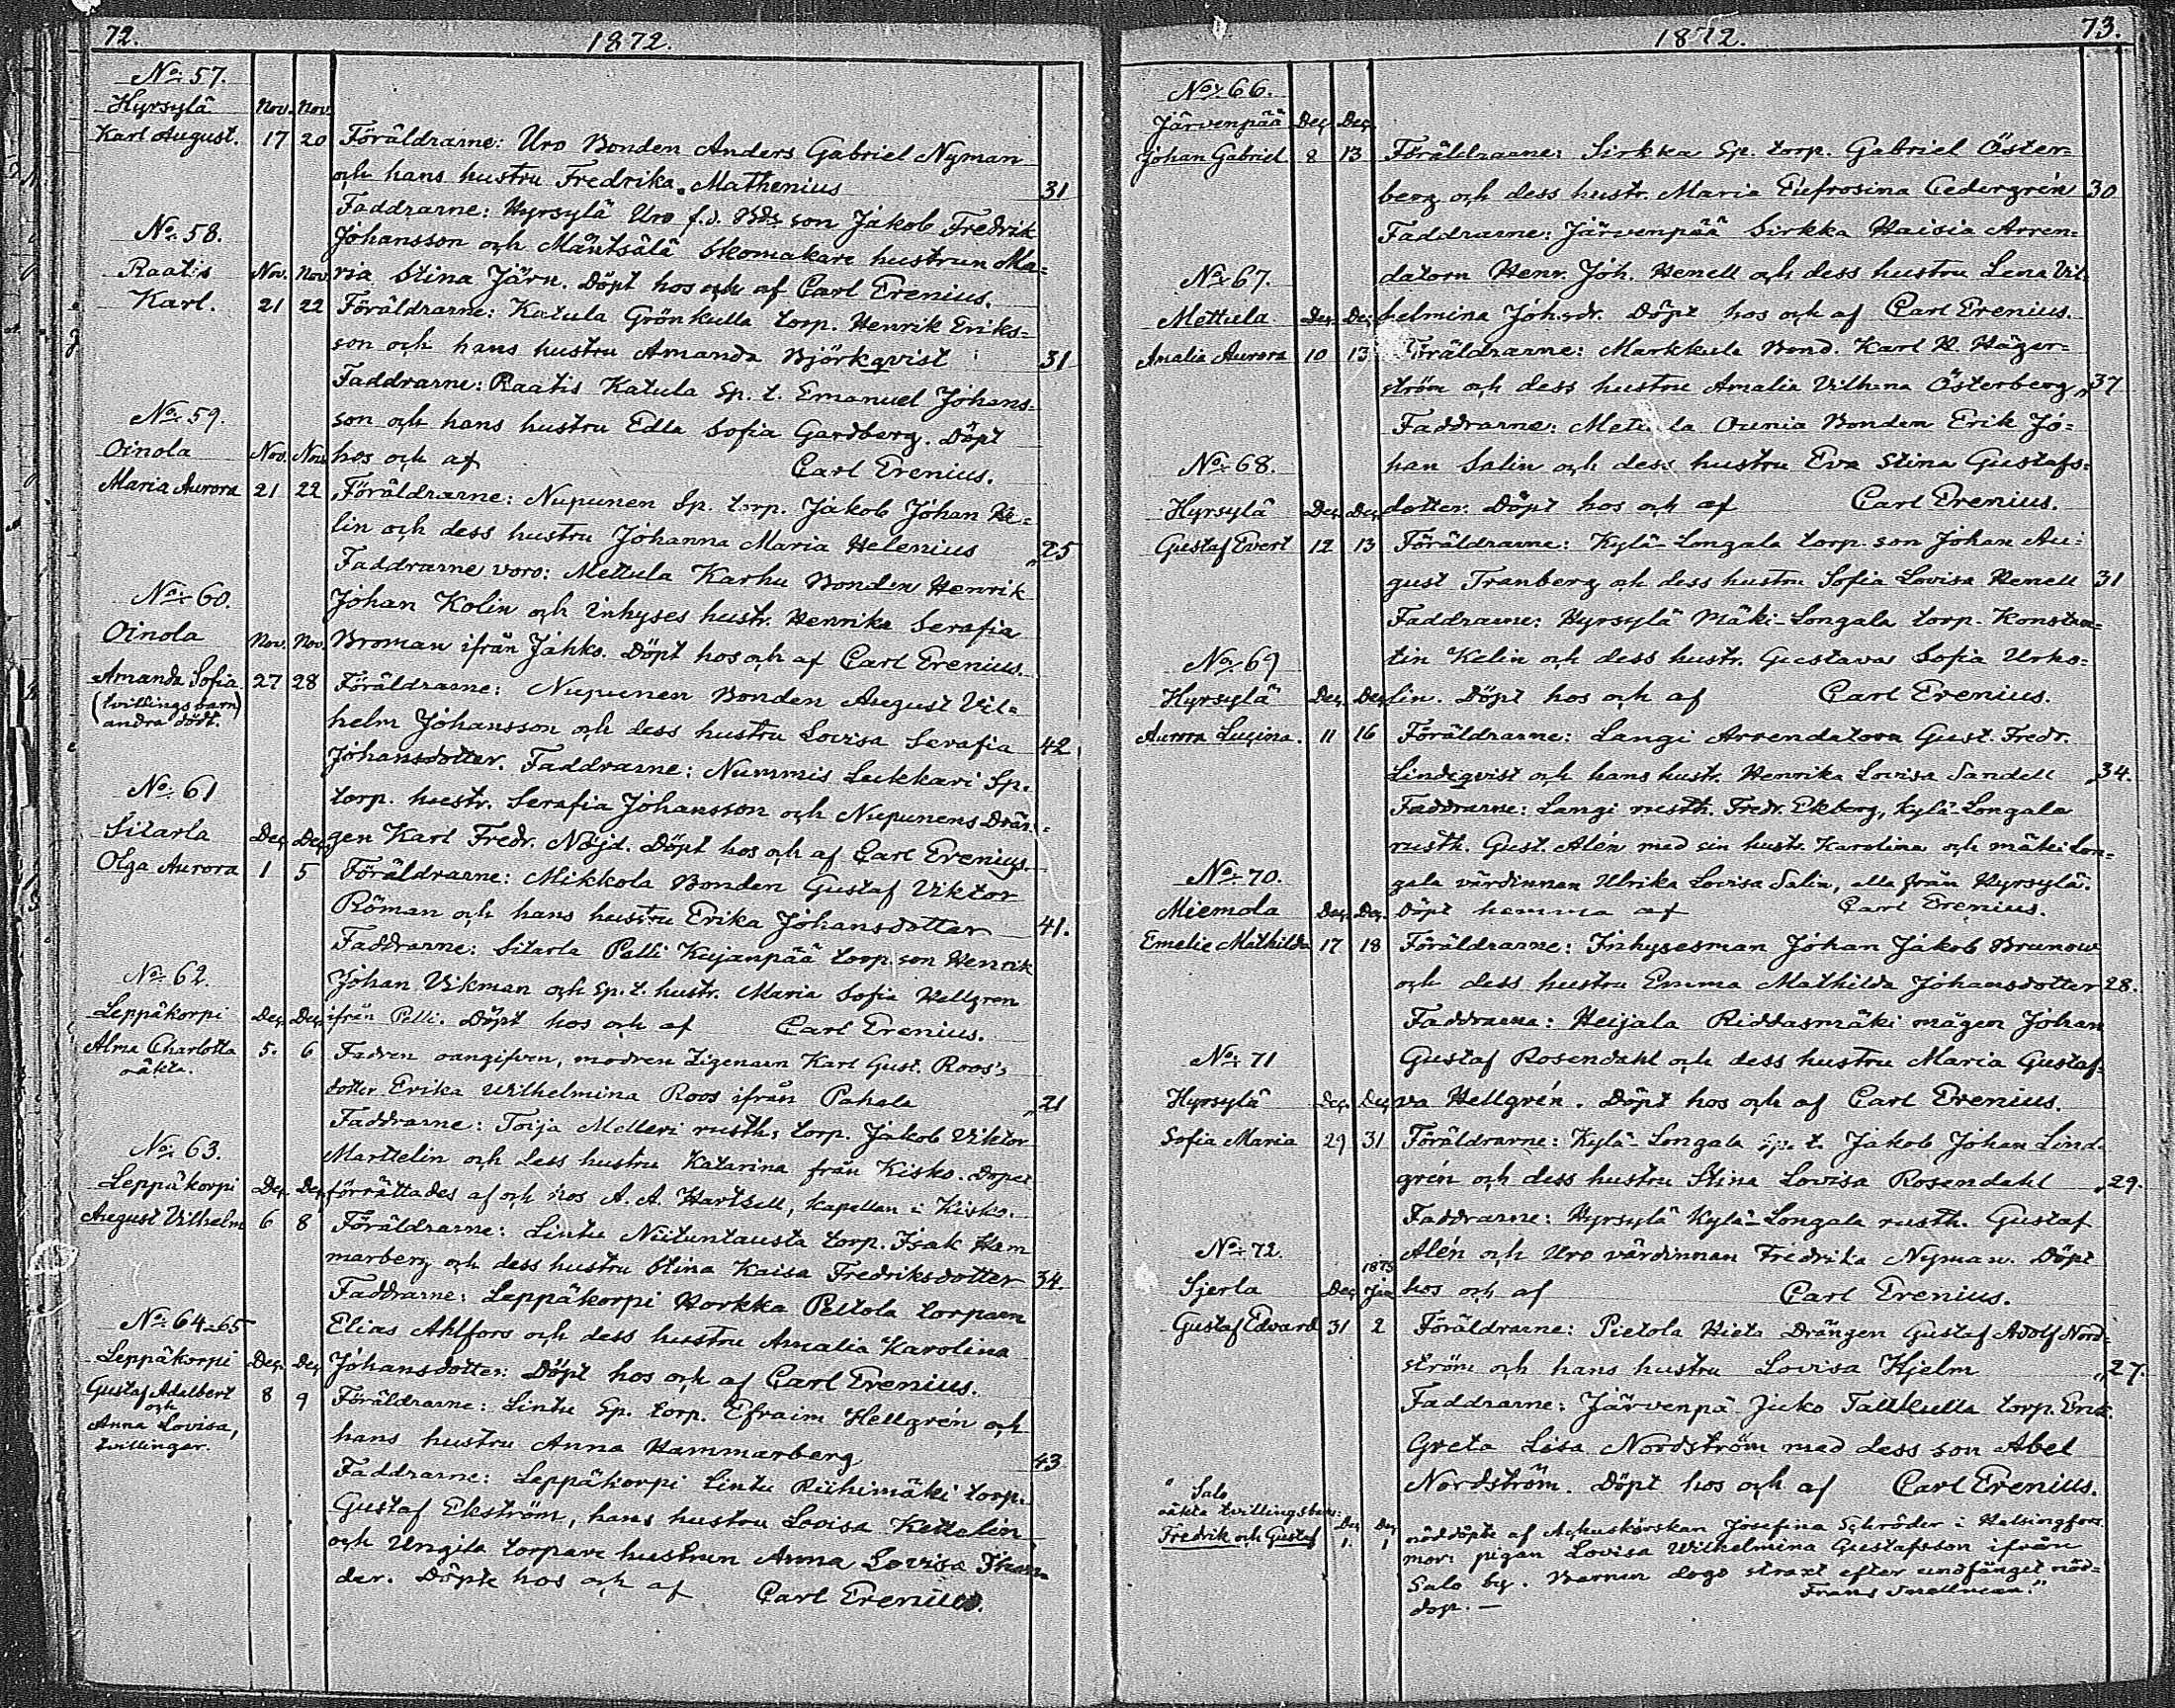 72.
1872.
No 57.
Hyrsylä Nov. Nov.
Karl August. 17 20 Föräldrarne: Uro Bonden Anders Gabriel Nyman
och hans hustru Fredrika Mathenius 31
Faddrarne: Hyrsylä Uro f.d. Bds son Jakob Fredrik
No 58.
Johansson och Mäntsälä Skomakare hustrun Ma=
Raatis Nov. Nov. ria Stina Järn. Döpt hos och af Carl Erenius.
Karl. 21 22 Föräldrarne: Katula Grönkulla torp. Henrik Eriks=
son och hans hustru Amanda Björkqvist 31
Faddrarne: Raatis Katula Sp. t. Emanuel Johans=
No 59.
son och hans hustru Edla Sofia Gardberg. Döpt
Oinola Nov. Nov. hos och af Carl Erenius.
Maria Aurora 21 22 Föräldrarne: Nupunen Sp. torp. Jakob Johan He=
lin och dess hustru Johanna Maria Helenius „25
Faddrarne voro: Mettula Karhu Bonden Henrik
No 60.
Johan Kolin och Inhyses hustr. Henrika Serafia
Oinola Nov. Nov. Broman ifrån Jahko. Döpt hos och af Carl Erenius.
Amanda Sofia 27 28 Föräldrarne: Nupunen Bonden August Vil=
(tvillingsbarn)
andra dödt.
helm Johansson och dess hustru Lovisa Serafia 42
Johansdotter. Faddrarne: Nummis Lukkari Sp.
No 61
torp. hustr. Serafia Johansson och Nupunens Drän=
Sitarla Dec. Dec. gen Karl Fredr. Nöjd. Döpt hos och af Carl Erenius.
Olga Aurora 1 5 Föräldrarne: Mikkola Bonden Gustaf Viktor
Röman och hans hustru Erika Johansdotter 41.
Faddrarne: Sitarla Pelli Kujanpää torp. son Henrik
No 62.
Johan Vikman och Sp. t. hustr. Maria Sofia Hallgren
Leppäkorpi Dec. Dec. ifrån Pelli. Döpt hos och af Carl Erenius.
Alma Charlotta 5. 6 Fadren oangifven, modren Zigenaren Karl Gust. Roos's
oäkta.
dotter Erika Wilhelmina Roos ifrån Pahala „21
Faddrarne: Toija Melleri rusth. torp. Jakob Viktor
No 63.
Marttelin och dess hustru Katarina från Kisko. Dopet
Leppäkorpi Dec. Dec. förrättades af och hos A. A. Hartzell, kapellan i Kisko.
August Vilhelm 6 8 Föräldrarne: Lintu Niituntausta torp. Isak Ham
marberg och dess hustru Stina Kaisa Fredriksdotter 34.
Faddrarne: Leppäkorpi Horkka Peltola torparen
No 64=65
Elias Ahlfors och dess hustru Amalia Karolina
Leppäkorpi Dec. Dec. Johansdotter: Döpt hos och af Carl Erenius.
Gustaf Adalbert 8 9 Föräldrarne: Lintu Sp. torp. Efraim Hellgrén och
och
Anna Lovisa,
tvillingar.
hans hustru Anna Hammarberg 43
Faddrarne: Leppäkorpi Lintu Riihimäki torp.
Gustaf Ekström, hans hustru Lovisa Kettelin
och Ungila torpare hustrun Anna Lovisa
der. Döpte hos och af Carl Erenius.
1872. 73.
No 66.
Järvenpää Dec. Dec.
Johan Gabriel 8 13 Föräldrarne: Sirkka Sp. torp. Gabriel Öster=
berg och dess hustr. Maria Eufrosina Cedergrén 30
Faddrarne: Järvenpää Sirkka Haisia Arren=
No 67.
datorn Henr. Joh. Henell och dess hustru Lena Vil=
Mettula Dec. Dec. helmina Joh.sdr. Döpt hos och af Carl Erenius.
Amalia Aurora 10 13 Föräldrarne: Markkula Bond. Karl H. Häger=
ström och dess hustru Amalia Vilh:na Österberg „37
Faddrarne: Mettula Ounia Bonden Erik Jo=
No 68.
han Salin och dess hustru Eva Stina Gustafs=
Hyrsylä Dec. Dec. dotter. Döpt hos och af Carl Erenius.
Gustaf Evert 12 13 Föräldrarne: Kylä-Longala torp. son Johan Au=
gust Tranberg och dess hustru Sofia Lovisa Henell 31
Faddrarne: Hyrsylä Mäki-Longala torp. Konstan=
No 69
tin Kelin och dess hustr. Gustava Sofia Urho=
Hyrsylä Dec. Dec. lin. Döpt hos och af Carl Erenius.
Aurora Lucina. 11 16 Föräldrarne: Langi Arrendatorn Gust. Fredr.
Lindeqvist och hans hustr. Henrika Lovisa Sandell „34.
Faddrarne: Langi rusth. Fredr. Ekberg, Kylä-Longala
rusth. Gust. Alén med sin hustr. Karolina och mäki Lon=
No 70.
gala värdinnan Ulrika Lovisa Salin, alla från Hyrsylä.
Miemola Dec. Dec. Döpt hemma af Carl Erenius.
Emelie Mathilda 17 18 Föräldrarne: Inhysesman Johan Jakob Brunow
och dess hustru Emma Mathilda Johansdotter 28.
Faddrarne: Heijala Riddasmäki mågen Johan
No 71
Gustaf Rosendahl och dess hustru Maria Gustaf=
Hyrsylä Dec. Dec. va Hellgrén. Döpt hos och af Carl Erenius.
Sofia Maria 29 31 Föräldrarne: Kylä-Longala Sp. t. Jakob Johan Lind=
grén och dess hustru Stina Lovisa Rosendahl „29.
Faddrarne: Hyrsylä Kylä-Longala rusth. Gustaf
No 72.
Alén och Uro värdinnan Fredrika Nyman. Döpt
1873
Sjerla Dec. Jan. hos och af Carl Erenius.
Gustaf Edvard 31 2 Föräldrarne: Pietola Hieta Drängen Gustaf Adolf Nord=
ström och hans hustru Lovisa Hjelm „27.
Faddrarne: Järvenpä Juko Tallkulla torp. Enk.
Greta Lisa Nordström med dess son Abel
Nordström. Döpt hos och af Carl Erenius.
" Salo
oäkta tvillingsbarn:
Fredrik och Gustaf Dec. 1. Dec. 1 nöddöpte af Ackuskörskan Josefina Schröder i Helsingfors.
mor: pigan Lovisa Wilhelmina Gustafsson ifrån
Salo by. Barnen dogo straxt efter undfånget nöd=
dop. — Frans Snellman."